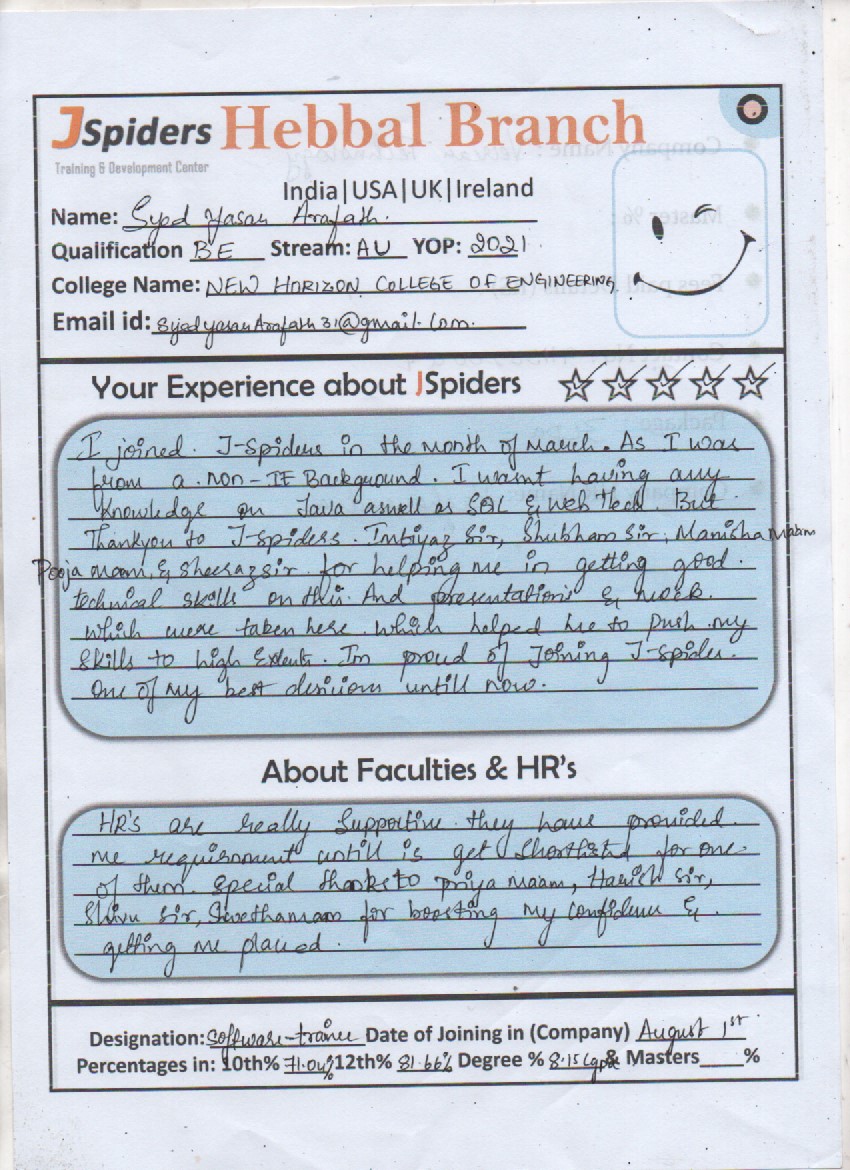 JSpiders Hebbal Branch
Training & Development Center
India|USA|UK|Ireland
Name: Syed Yasar Arafath.
Qualification BE Stream: AU YOP: 2021
College Name: NEW HORIZON COLLEGE OF ENGINEERING
Email id: SyedyasarArafath31@gmail.com.
Your Experience about JSpiders
I joined. J-Spiders in the month of March. As I was
from a non-IT Background. I wasnt having any
knowledge on Java aswell as SQL & Web Tech. But
Thankyou to J-spiders. Imtiyaz Sir, Shubham Sir, Manisha maam
Pooja maam, & Sheeraz sir for helping me in getting good.
technical skills on this. And presentations & mock.
which were taken here. which helped me to push my
skills to high Extents. Im proud of Joining J-spider.
One of my best desicions untill now.
About Faculties & HR's
HR's are really Supportive. they have provided
me requirnment untill is get Shortlisted for one
of them. Special thanks to priya maam, Harish Sir,
Shivu Sir, Swetha maam for boosting my confidence &
getting me placed.
Designation: Software-trainee Date of Joining in (Company) August 1st
Percentages in: 10th% 71.04% 12th% 81.66% Degree % 8.15 Cgpa & Masters____%
Company Name:
Master %:
Fees paid
Contact No:
Package